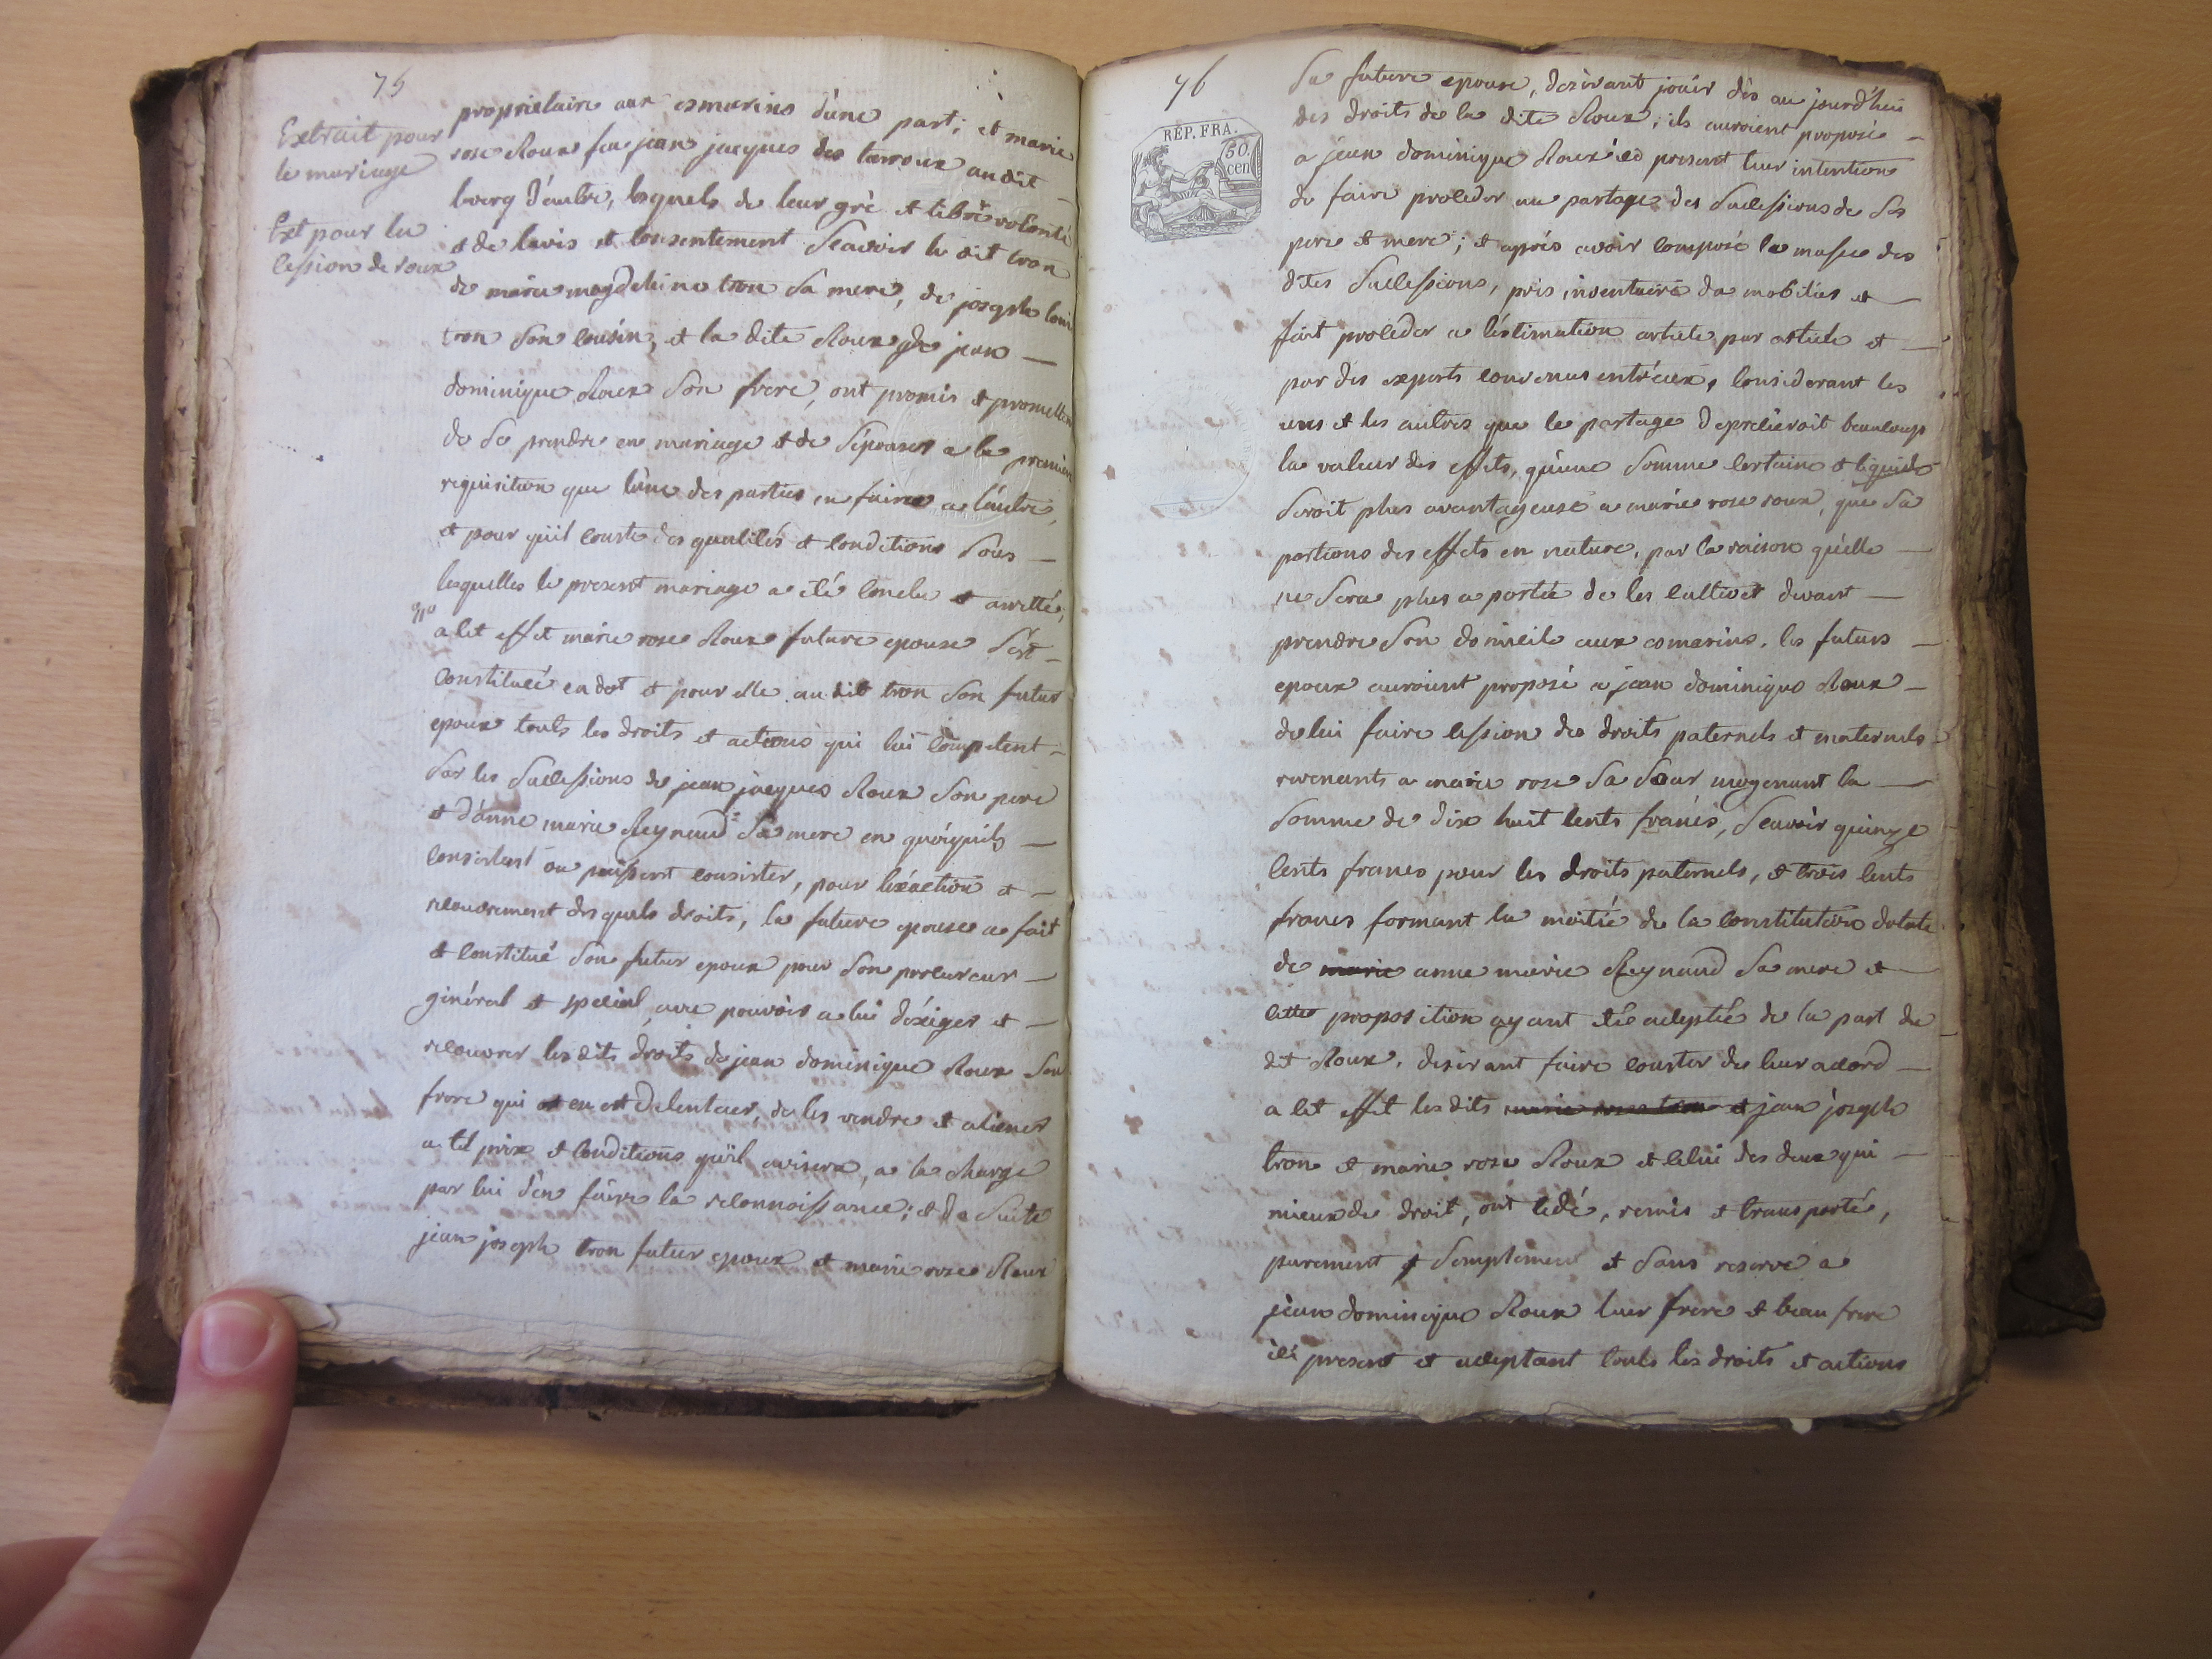 75
Extrait pour
le mariage
Ext pour la
cession de roux
propriétaire aux esmarins d'une part; et marie
rose Roux feu jean jacques des tarroux audit
bourg d'autre, lesquels de leur gré et libre volonté
et de lavis et consentement Scavoir le dit tron
de marie magdeleine tron Sa mere, de joseph louis
tron Son cousin, et la dite Roux de jean
dominique Roux Son frere, ont promis et promettent
de Se prendre en mariage et de S'épouser a la premiere
requisition que l'une des parties en faira a l'autre,
et pour qu'il conste des qualités et conditions Sous
lesquelles le present mariage a été conclu et arretté,
a cet effet marie rose Roux future epouse S'est
constituée en dot et pour elle audit tron Son futur
epoux touts les droits et actions qui lui competent
Sur les Successions de jean jacques Roux Son pere
et d'anne marie Reynaud Sa mere en quoiquils
consistent ou puissent consister, pour l'exaction et
recouvrement desquels droits, la future epouse a fait
et constitué Son futur epoux pour Son procureur
général et special, avec pouvoir a lui d'exiger et
recouvrer les dits droits de jean dominique Roux Son
frere qui est en est detenteur, de les vendre et aliener
a tel prix et conditions qu'il avisera, a la charge
par lui d'en faire la reconnoissance; et de Suite
jean joseph tron futur epoux et marie rose Roux
76
RÉP. FRA.
50.
cen
Sa future epouse, desirant jouir dès aujourd'hui
des droits de la dite Roux, ils auroient proposé
a jean dominique Roux ici present leur intention
de faire proceder au partage des Successions de Ses
pere et mere; et après avoir composé la masse des
dites Successions, pris inventaire da mobilier et
fait proceder a l'estimation article par article et
par des experts convenus entr'eux, considerant les
uns et les autres que le partage deprecieroit beaucoup
la valeur des effets, qu'une Somme certaine et liquide
Seroit plus avantageuse a marie rose roux, que Sa
portions des effets en nature, par la raison qu'elle
ne Sera plus a portée de les cultiver devant
prendre Son domicile aux esmarins, les futurs
epoux auroient proposé a jean dominique Roux
de lui faire cession des droits paternels et maternels
revenants a marie rose Sa Sœur moyenant la
Somme de dix huit cents francs, Scavoir quinze
cents francs pour les droits paternels, et trois cents
francs formant la moitié de la constitution dotale
de marie anne marie Reynaud Sa mere et
cette proposition ayant été acceptée de la part du
dit Roux, desirant faire conster de leur accord
a cet effet les dits marie rose tron et jean joseph
tron et marie rose Roux et celui des deux qui
mieux de droit, ont cedé, remis et transporté,
purement et Simplement et Sans reserve a
jean dominique Roux leur frere et beau frere
ici present et acceptant touts les droits et actions